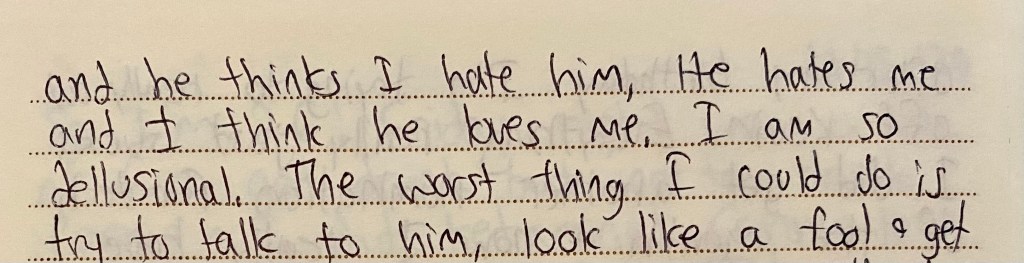 and he thinks I hate him, He hates me
and I think he loves me. I am so
dellusional. The worst thing I could do is
try to talk to him, look like a fool & get